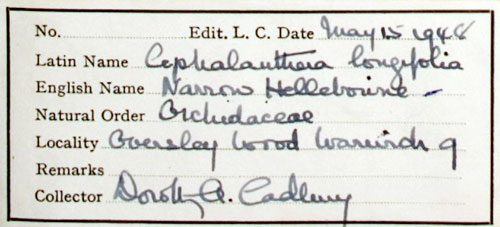 No. Edit. L. C. Date May 15 1948
Latin Name Cephalanthera longifolia
English Name Narrow Helleborine
Natural Order Orchidaceae
Locality Oversley Wood Warwick 9
Remarks
Collector Dorothy A. Cadbury